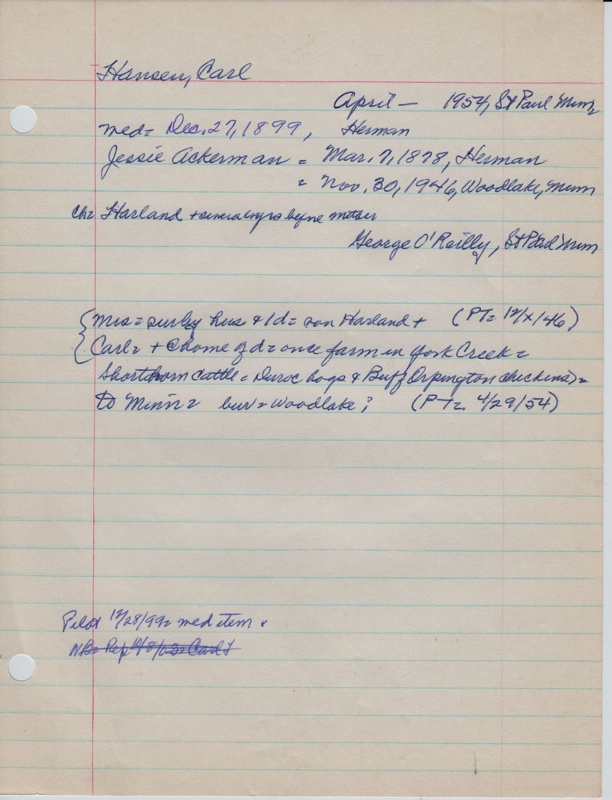 Hansen, Carl
April — 1954, St Paul Minn
med= Dec. 27, 1899, Herman
Jessie Ackerman = Mar. 7, 1878, Herman
= Nov. 30, 1946, Woodlake, Minn
Ch= Harland +
George O'Reilly, St Paul Minn
Mrs= surby hus & 1 d= son Harland + (PT= 12/x/46)
Carl= + @ home of d= once farm in York Creek=
Shorthorn cattle= Duroc hogs & Buff Orpington chickens)=
to Minn= bur= Woodlake; (PT= 4/29/54)
Pilot 12/28/99= med item
NB= Rep Carl +